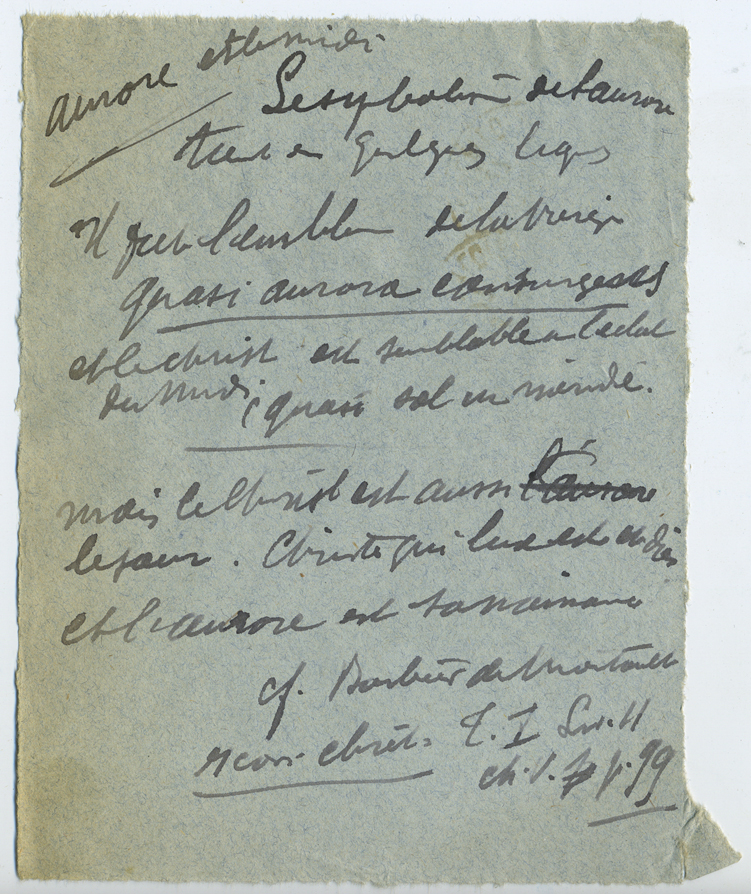 aurore et le midi
Le symbolisme de l'aurore
tient en quelques lignes
Il faut l'ensemble de la vierge
quasi aurora consurgens
et le christ est semblable à l'eclat
du midi, quasi sol in meridie.
mais le Christ est aussi l'aurore
le jour. Christe qui lux es et dies
et l'aurore est sa naissance
cf. Barbier de Montault
Icon. chrét. T. I Liv. II
ch. V. p. 99